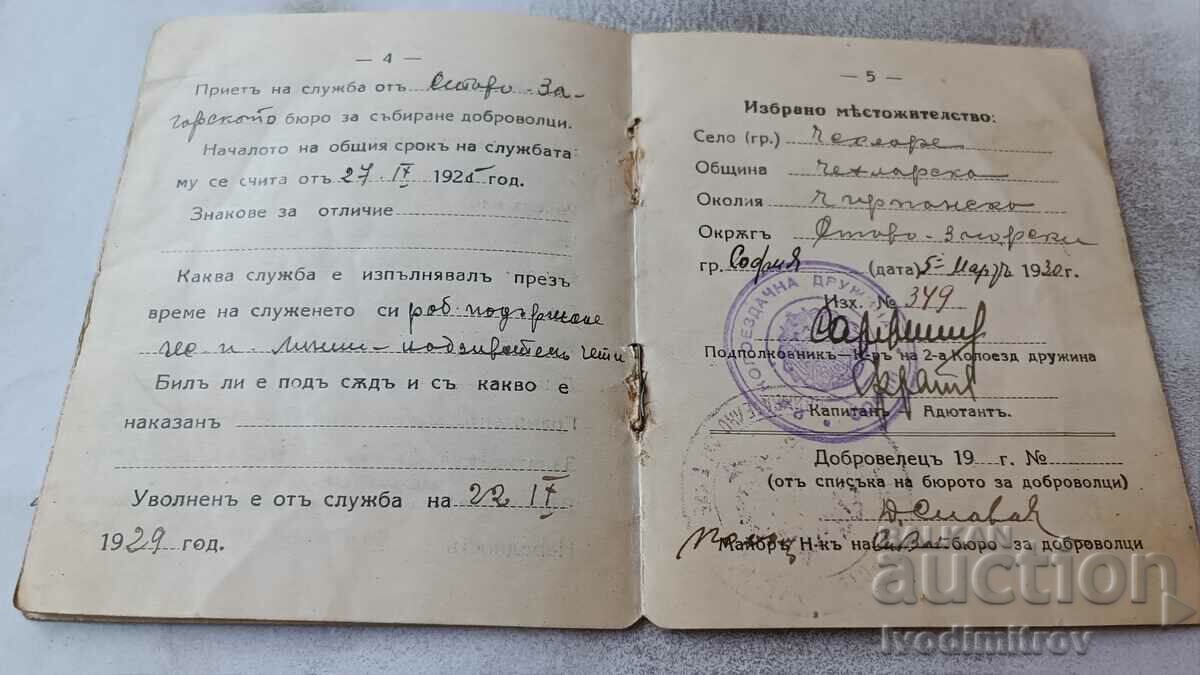 — 4 —
Приетъ на служба отъ Старо-За-
горското бюро за събиране доброволци.
Началото на общия срокъ на службата
му се счита отъ 27.IV 1925 год.
Знакове за отличие
Каква служба е изпълнявалъ презъ
време на служенето си
Билъ ли е подъ сѫдъ и съ какво е
наказанъ
Уволненъ е отъ служба на 22 IV
1929 год.
— 5 —
Избрано мѣстожителство:
Село (гр.) Чехларе
Община Чехларска
Околия Чирпанска
Окрѫгъ Старо-Загорски
гр. София (дата) 5-Мартъ 1930 г.
Изх. № 349
Подполковникъ—К-ръ на 2-а Колоезд дружина
Капитанъ Адютантъ.
Добровелецъ 19 г. №
(отъ списъка на бюрото за доброволци)
Майоръ Н-къ на бюро за доброволци
КОЛОЕЗДАЧНА ДРУЖИНА
BALKAN
auction
ivodimitrov